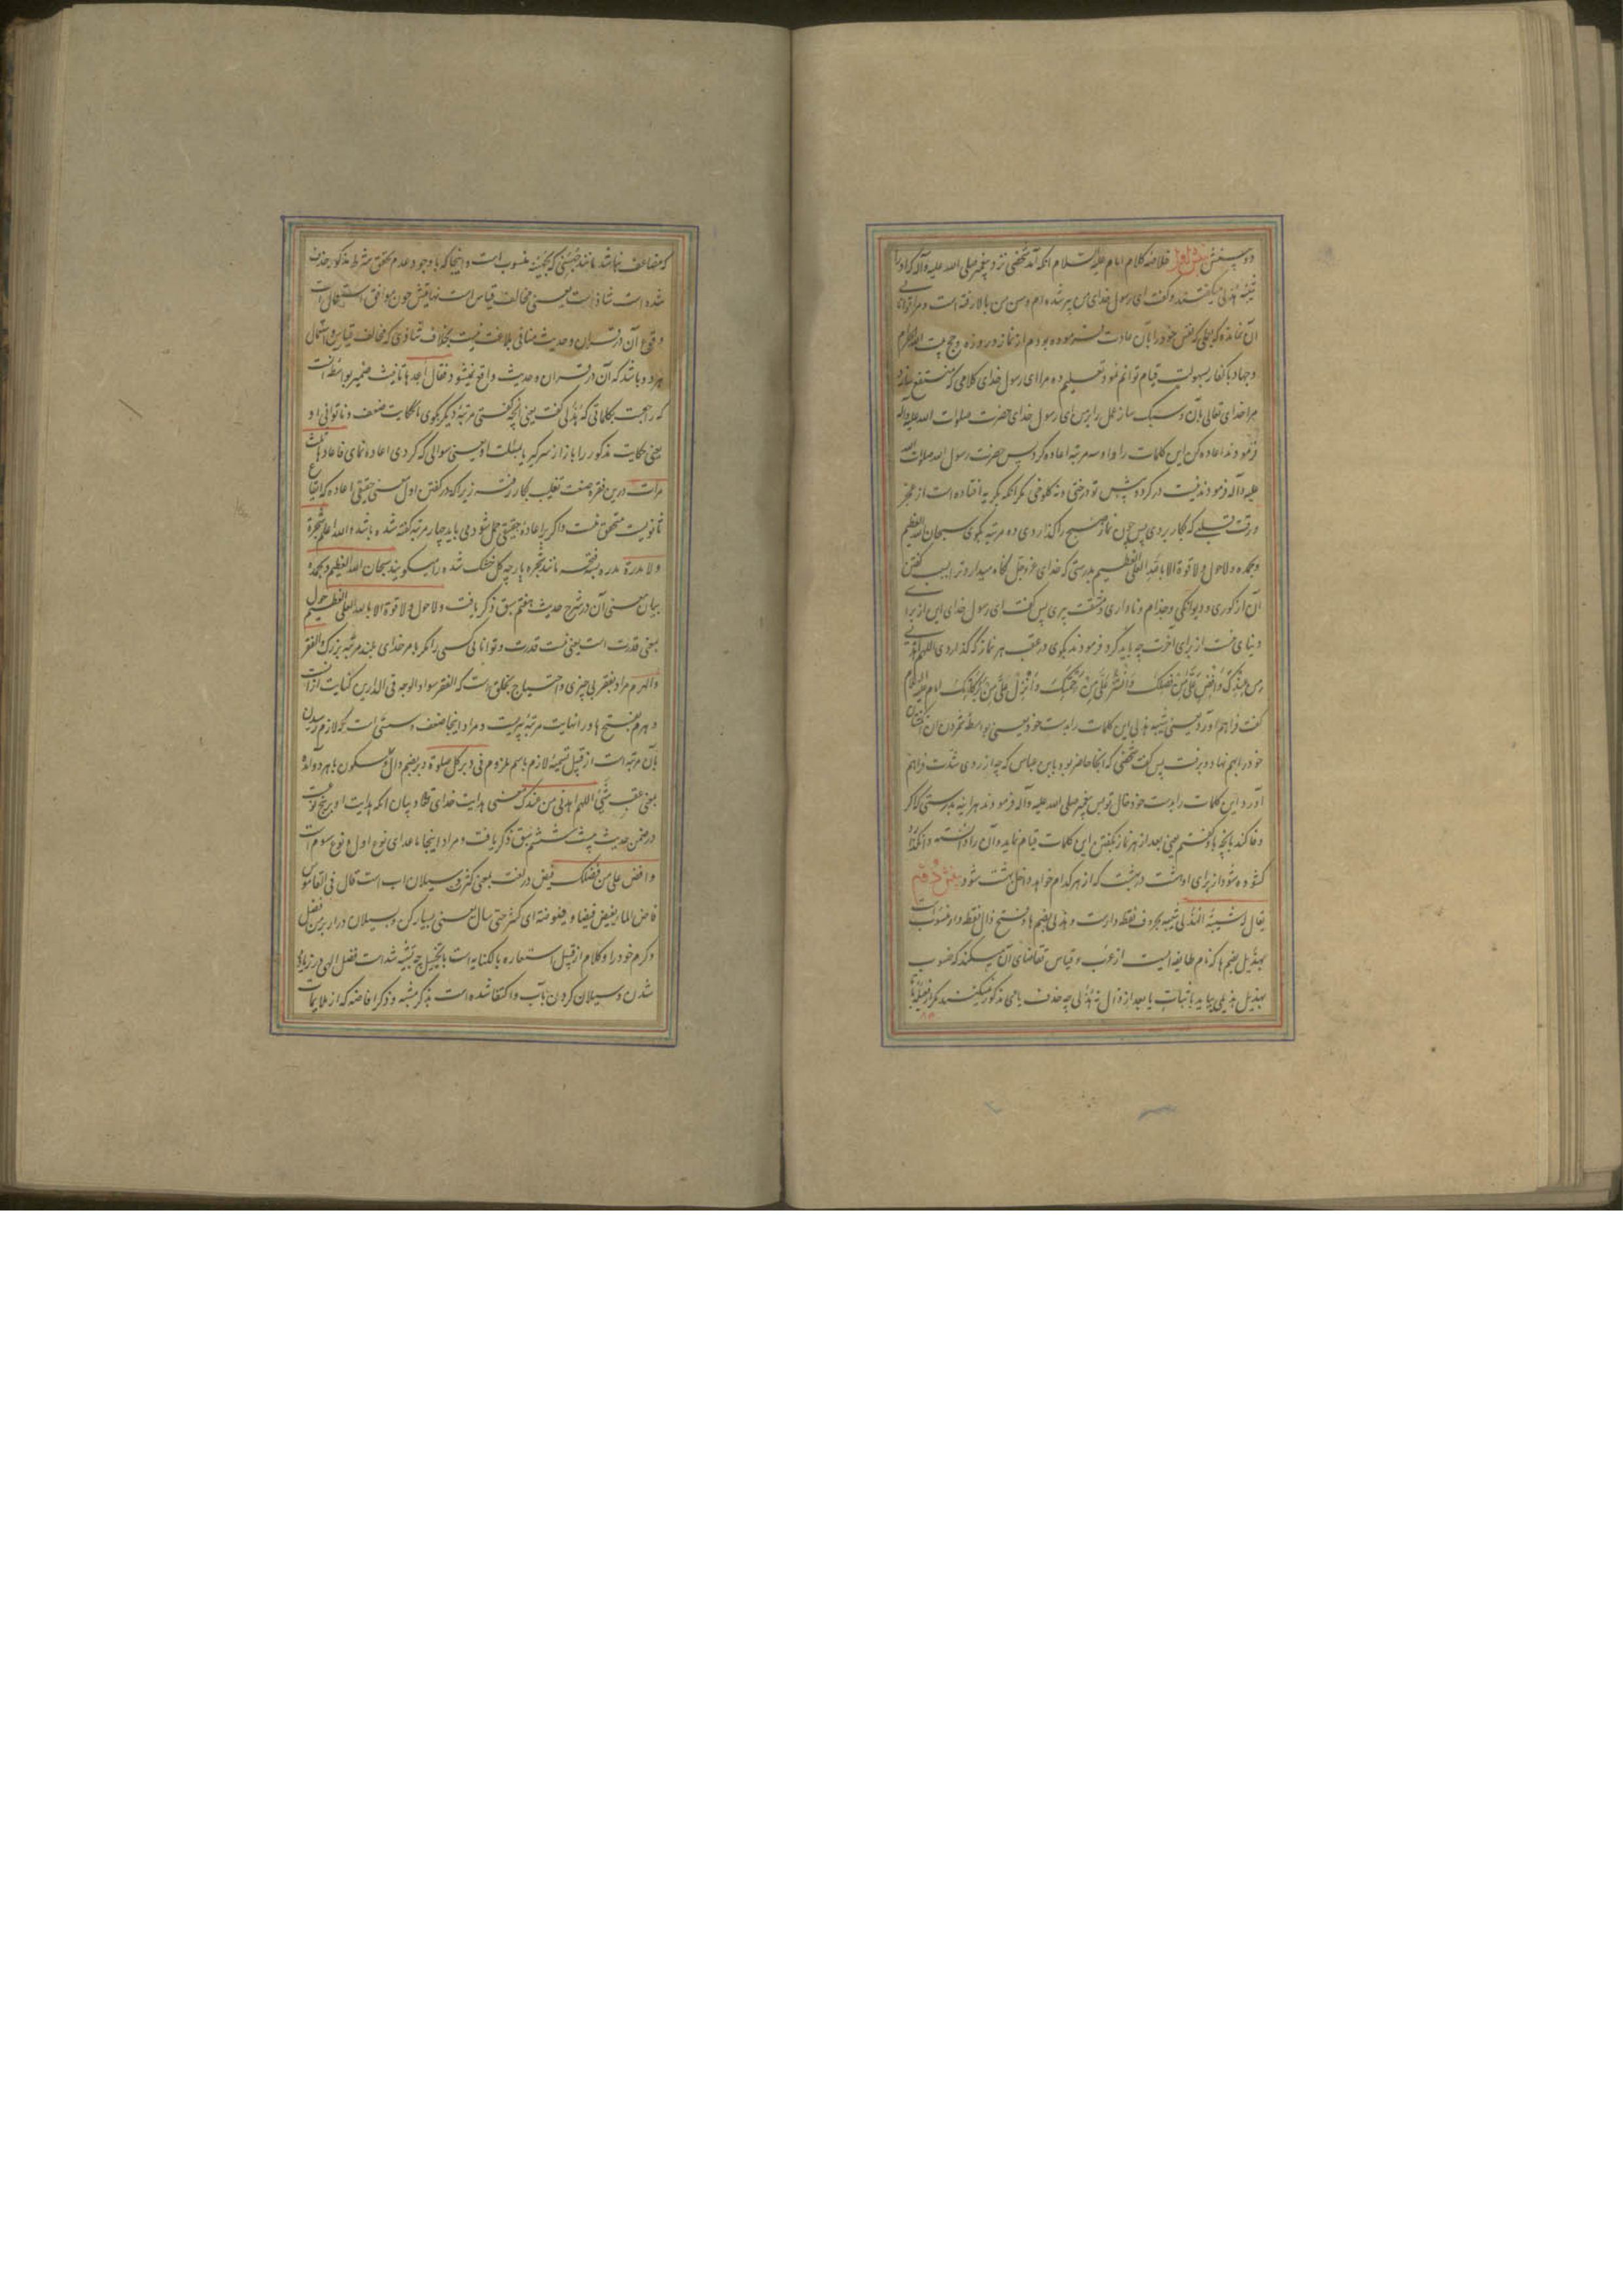 دو پنفش نقش اول خلاصه کلام امام علیه السلام انکه آمد شخصی نزد پیغمبر صلی الله علیه وآله که او را
شیبه هذلی میکفتند و کفت ای رسول خدای من پیر شده ام و سن من بالا رفته است و مرا توانایی
آن نمانده که بعملی که نفس خود را بآن عادت فرموده بودم از نماز و روزه و حج بیت الله الحرام
و جهاد با کفار بسهولت قیام توانم نمود تعلیم ده مرا ای رسول خدای کلامی که منتفع سازد
مرا خدای تعالی بآن و سبک ساز عمل را بر من ای رسول خدای حضرت صلوات الله علیه وآله
فرمودند اعاده کن این کلمات را و او سه مرتبه اعاده کرد پس حضرت رسول الله صلوات الله
علیه وآله فرمودند نیست در کرده پیش تو درختی و نه کلوخی مکر انکه بکریه افتاده است از عجز
و رقت قلبی که بکار بردی پس چون نماز صبح را کذاردی ده مرتبه بکوی سبحان الله العظیم
وبحمده ولا حول ولا قوة الا بالله العلی العظیم بدرستی که خدای عز و جل نکاه میدارد ترا بسبب کفتن
آن از کوری و دیوانکی و جذام و ناداری و مشقت پیری پس کفت ای رسول خدای این از برای
دنیای ماست از برای آخرت چه باید کرد فرمودند بکوی در عقب هر نماز که کذاردی اللهم اهدنی
من عندک وافض علی من فضلک وانشر علی من رحمتک وانزل علی من برکاتک امام علیه السلام
کفت فراهم آورد یعنی شیبه هذلی این کلمات را بدست خود یعنی بواسطه شمردن آن انکشتان
خود را بهم نهاد و برفت پس کفت شخصی که آنجا حاضر بود بابن عباس که چه از روی شدت فراهم
آورد این کلمات را بدست خود خال تو پس پیغمبر صلی الله علیه وآله فرمودند هر آینه بدرستی که اکر
وفا کند بآنچه باو کفتم یعنی بعد از هر نماز بکفتن این کلمات قیام نماید و آن را دانسته وانکذارد
کشوده شود از برای او هشت در بهشت که از هر کدام خواهد داخل بهشت شود نقش دوم
یقال له شیبة الهذلی شیبه بحروف نقطه دار است و هذلی بضم ها و فتح ذال نقطه دار منسوبست
بهذیل بضم ها که نام طایفه ایست از عرب و قیاس تقاضای آن میکند که منسوب
بهذیل هذیلی بیاید باثبات یا بعد از ذال نه هذلی چه حذف یای مذکور نمیکنند مکر از فعیله با تا
که مضاعف نباشد مانند جهنی که بجهینه منسوب است و اینجا که با وجود عدم تحقق شرط مذکور حذف
شده است شاذ است یعنی مخالف قیاس است نهایتش چون موافق استعمال است
وقوع آن در قرآن و حدیث منافی بلاغت نیست بخلاف شاذی که مخالف قیاس و استعمال
هر دو باشد که آن در قرآن و حدیث واقع نمیشود فقال اعدها تانیث ضمیر بواسطه آنست
که راجعست بکلماتی که هذلی کفت یعنی آنچه کفتی مرتبه دیکر بکوی حکایت ضعف و ناتوانی او
یعنی حکایت مذکور را باز از سر کیر یا مسئلت او یعنی سوالی که کردی اعاده نمای فاعادها ثلث
مرات درین فقره صنعت تغلیب بکار رفته زیرا که در کفتن اول معنی حقیقی اعاده که ایقاع
ثانویست متحقق نیست و اکر بر اعاده حقیقی حمل شود می باید چهار مرتبه کفته شده باشد والله اعلم شجرة
ولا مدرة مدره بفتحه مانند شجره پارچه کل خشک شده را میکویند سبحان الله العظیم وبحمده
بیان معنی آن در شرح حدیث هفتم سبق ذکر یافت ولا حول ولا قوة الا بالله العلی العظیم حول
بمعنی قدرت است یعنی نیست قدرت و توانایی کسی را مکر با مر خدای بلند مرتبه بزرک والفقر
والهرم مراد بفقر بی چیزی و احتیاج بخلق است که الفقر سواد الوجه فی الدارین کنایت از آنست
و هرم بفتح ها و را نهایت مرتبه پیریست و مراد اینجا ضعف و سستی است که لازم رسیدن
بآن مرتبه است از قبیل تسمیه لازم باسم ملزوم فی دبر کل صلوة دبر بضم دال و سکون با هر دو آمده
بمعنی عقب شیء اللهم اهدنی من عندک معنی هدایت خدای تعالی و بیان انکه هدایت او بر پنج نوعست
در ضمن حدیث بیست ششم سبق ذکر یافت و مراد اینجا ماعدای نوع اول و نوع سوم است
وافض علی من فضلک فیض در لغت بمعنی کثرت و سیلان آب است قال فی القاموس
فاض الماء یفیض فیضا و فیوضته ای کثر حتی سال یعنی بسیار کن و سیلان در آر بر من فضل
و کرم خود را و کلام از قبیل استعاره بالکنایه است با تخییل چه تشبیه شده است فضل الهی در زیاده
شدن و سیلان کردن بآب و اکتفا شده است بذکر مشبه و ذکر افاضه که از ملایمات